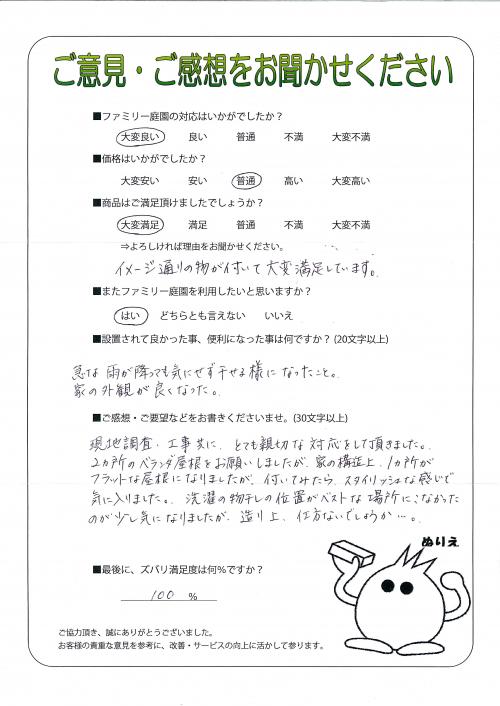 ご意見・ご感想をお聞かせください
■ファミリー庭園の対応はいかがでしたか？
大変良い 良い 普通 不満 大変不満
■価格はいかがでしたか？
大変安い 安い 普通 高い 大変高い
■商品はご満足頂けましたでしょうか？
大変満足 満足 普通 不満 大変不満
⇒よろしければ理由をお聞かせください。
イメージ通りの物が付いて大変満足しています。
■またファミリー庭園を利用したいと思いますか？
はい どちらとも言えない いいえ
■設置されて良かった事、便利になった事は何ですか？(20文字以上)
急な雨が降っても気にせず干せる様になったこと。
家の外観が良くなった。
■ご感想・ご要望などをお書きくださいませ。(30文字以上)
現地調査・工事共に、とても親切な対応をして頂きました。
2ヵ所のベランダ屋根をお願いしましたが、家の構造上、1ヵ所が
フラットな屋根になりましたが、付いてみたら、スタイリッシュな感じで
気に入りました。洗濯の物干しの位置がベストな場所にこなかった
のが少し気になりましたが、造り上、仕方ないでしょうか…。
ぬりえ
■最後に、ズバリ満足度は何%ですか？
100 %
ご協力頂き、誠にありがとうございました。
お客様の貴重な意見を参考に、改善・サービスの向上に活かして参ります。